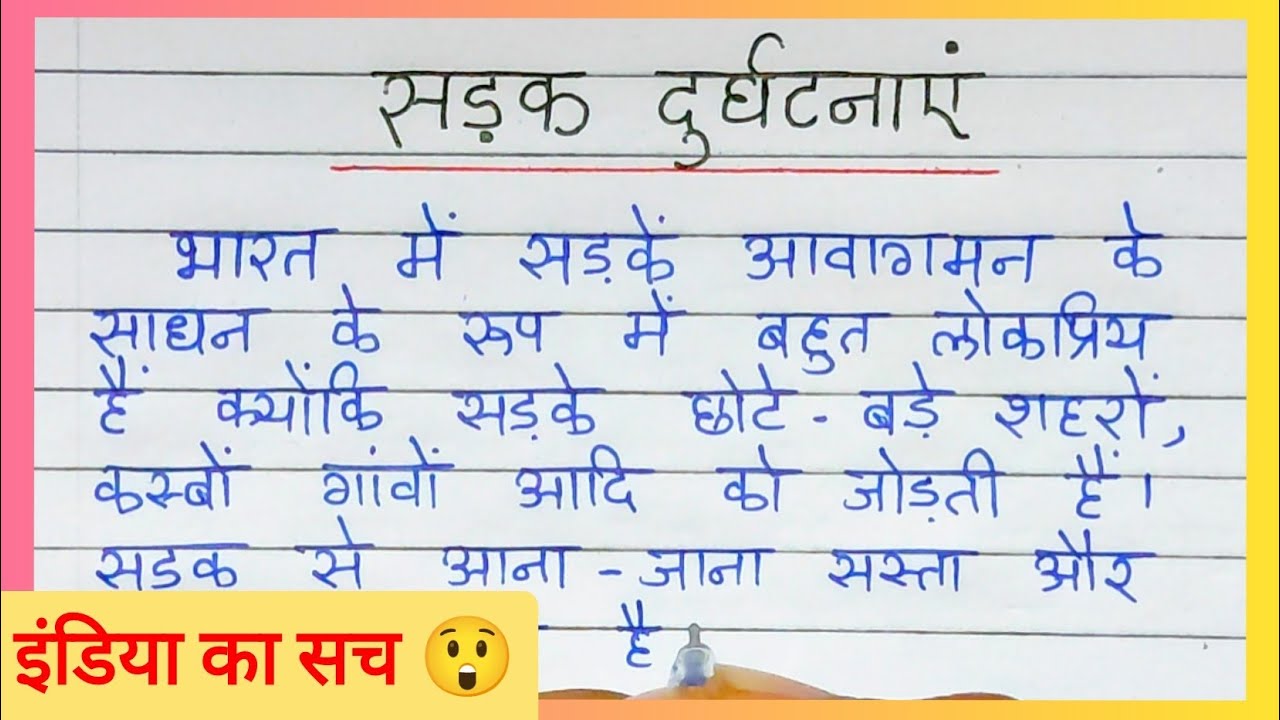 सड़क दुर्घटनाएं
भारत में सड़कें आवागमन के
साधन के रूप में बहुत लोकप्रिय
हैं क्योंकि सड़के छोटे - बड़े शहरों,
कस्बों गांवों आदि को जोड़ती हैं।
सडक से आना - जाना सस्ता और
है
इंडिया का सच 😲